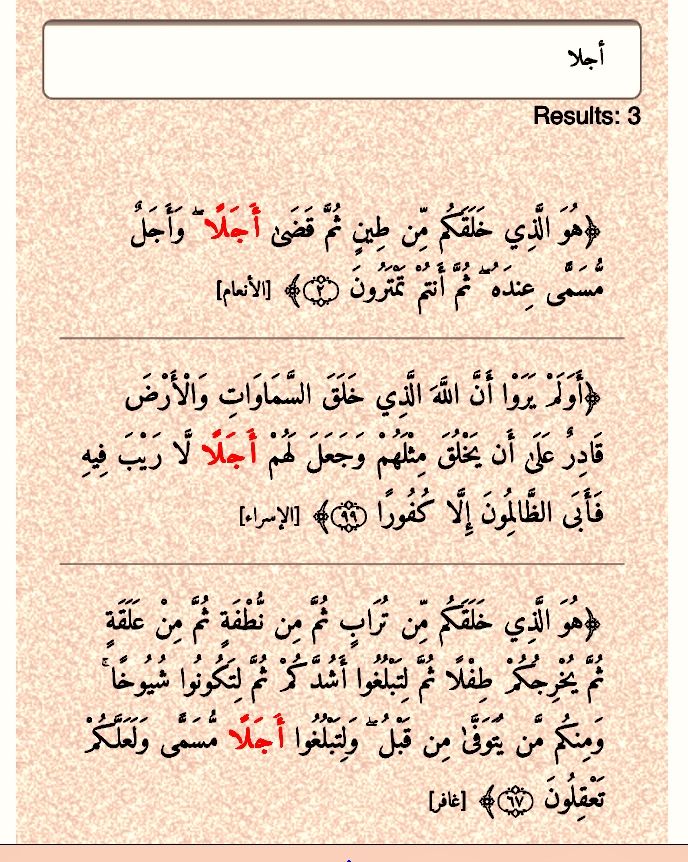 أجلا
Results: 3
﴿هُوَ الَّذِي خَلَقَكُم مِّن طِينٍ ثُمَّ قَضَىٰ أَجَلًا ۖ وَأَجَلٌ
مُّسَمًّى عِندَهُ ۖ ثُمَّ أَنتُمْ تَمْتَرُونَ ﴿٢﴾ [الأنعام]
﴿أَوَلَمْ يَرَوْا أَنَّ اللَّهَ الَّذِي خَلَقَ السَّمَاوَاتِ وَالْأَرْضَ
قَادِرٌ عَلَىٰ أَن يَخْلُقَ مِثْلَهُمْ وَجَعَلَ لَهُمْ أَجَلًا لَّا رَيْبَ فِيهِ
فَأَبَى الظَّالِمُونَ إِلَّا كُفُورًا ﴿٩٩﴾ [الإسراء]
﴿هُوَ الَّذِي خَلَقَكُم مِّن تُرَابٍ ثُمَّ مِن نُّطْفَةٍ ثُمَّ مِنْ عَلَقَةٍ
ثُمَّ يُخْرِجُكُمْ طِفْلًا ثُمَّ لِتَبْلُغُوا أَشُدَّكُمْ ثُمَّ لِتَكُونُوا شُيُوخًا ۚ
وَمِنكُم مَّن يُتَوَفَّىٰ مِن قَبْلُ ۖ وَلِتَبْلُغُوا أَجَلًا مُّسَمًّى وَلَعَلَّكُمْ
تَعْقِلُونَ ﴿٦٧﴾ [غافر]